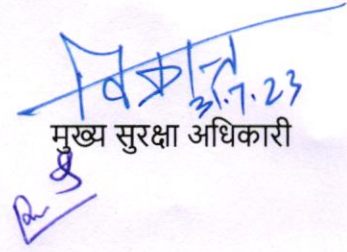 विक्रान्त
31.7.23
मुख्य सुरक्षा अधिकारी